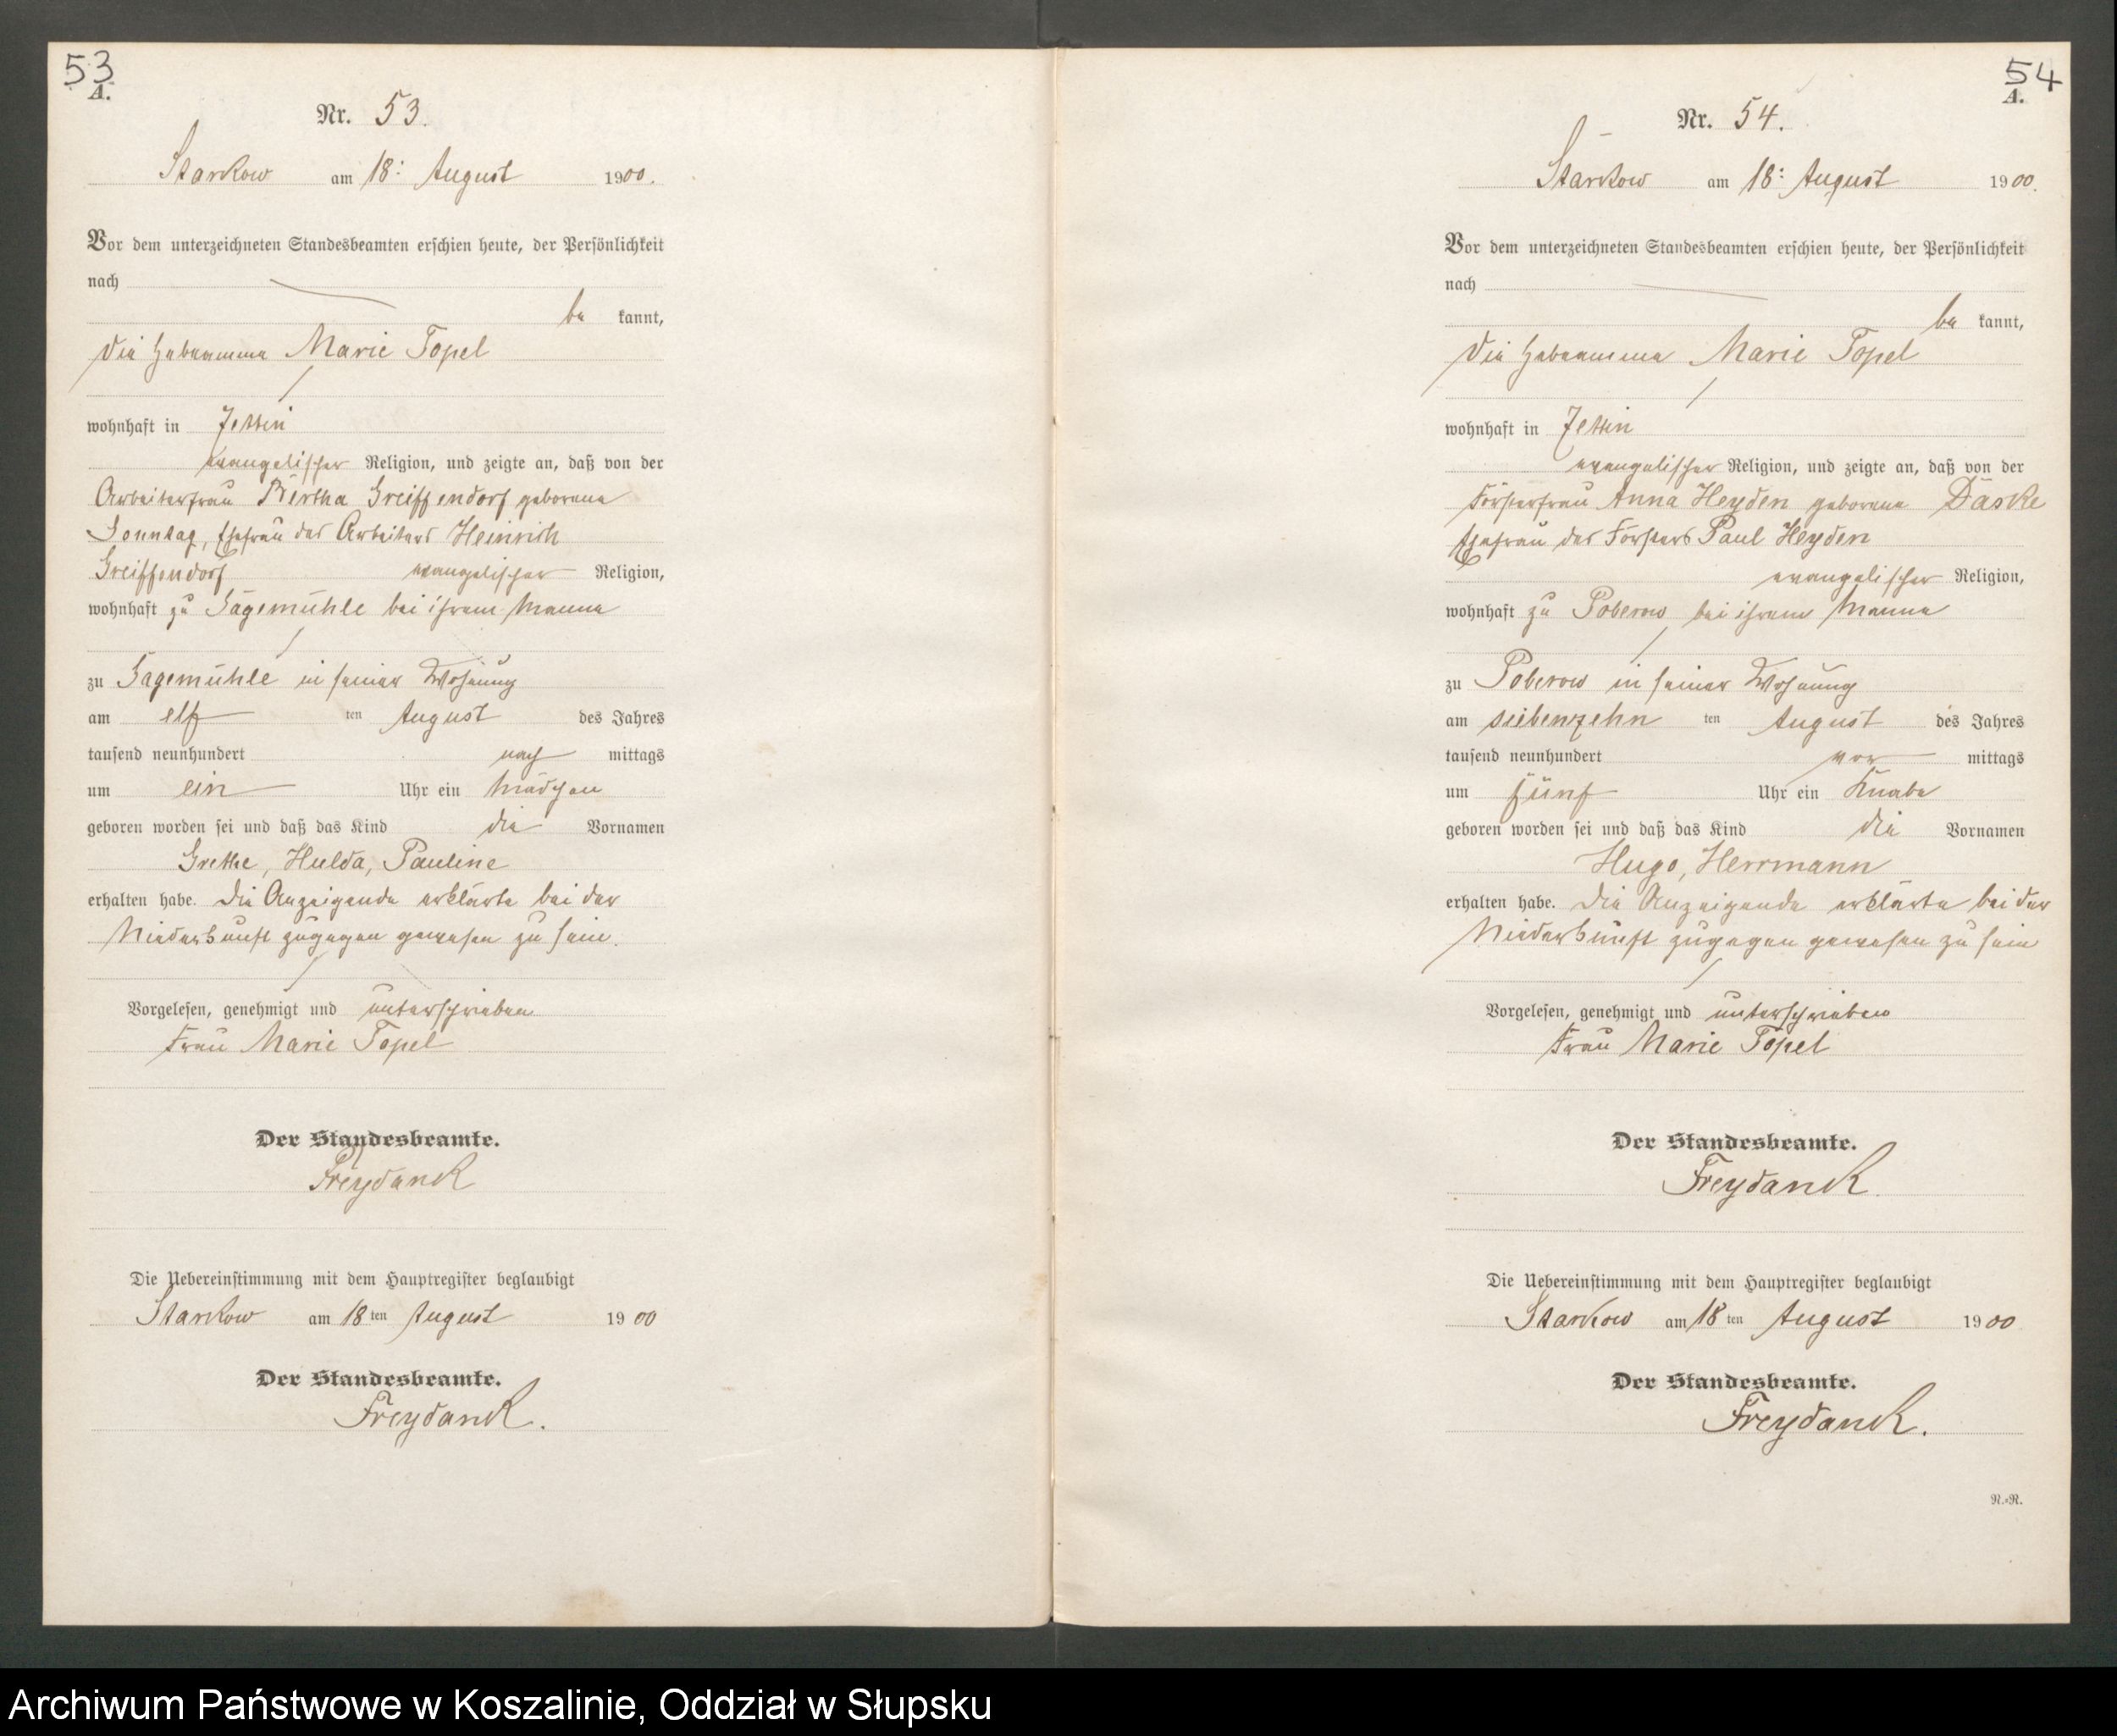 53
A.
Nr. 53.
Starkow am 18: August 1900.
Vor dem unterzeichneten Standesbeamten erschien heute, der Persönlichkeit
nach
be kannt,
die Hebeamme Marie Topel
wohnhaft in Jettin
evangelischer Religion, und zeigte an, daß von der
Arbeiterfrau Bertha Greiffendorf geborene
Sonntag, Ehefrau des Arbeiters Heinrich
Greiffendorf evangelischer Religion,
wohnhaft zu Sägemühle bei ihrem Manne
zu Sägemühle in seiner Wohnung
am elf ten August des Jahres
tausend neunhundert nach mittags
um ein Uhr ein Mädchen
geboren worden sei und daß das Kind die Vornamen
Grethe, Hulda, Pauline
erhalten habe. Die Anzeigende erklärte bei der
Niederkunft zugegen gewesen zu sein.
Vorgelesen, genehmigt und unterschrieben
Frau Marie Topel
Der Standesbeamte.
Freydank
Die Uebereinstimmung mit dem Hauptregister beglaubigt
Starkow am 18 ten August 1900
Der Standesbeamte.
Freydank.
54
A.
Nr. 54.
Starkow am 18: August 1900.
Vor dem unterzeichneten Standesbeamten erschien heute, der Persönlichkeit
nach
be kannt,
die Hebeamme Marie Topel
wohnhaft in Jettin
evangelischer Religion, und zeigte an, daß von der
Försterfrau Anna Heyden geborene Däske
Ehefrau des Försters Paul Heyden
evangelischer Religion,
wohnhaft zu Poberow bei ihrem Manne
zu Poberow in seiner Wohnung
am siebenzehn ten August des Jahres
tausend neunhundert vor mittags
um fünf Uhr ein Knabe
geboren worden sei und daß das Kind die Vornamen
Hugo, Herrmann
erhalten habe. Die Anzeigende erklärte bei der
Niederkunft zugegen gewesen zu sein
Vorgelesen, genehmigt und unterschrieben
Frau Marie Topel
Der Standesbeamte.
Freydank.
Die Uebereinstimmung mit dem Hauptregister beglaubigt
Starkow am 18 ten August 1900
Der Standesbeamte.
Freydank.
N.-N.
Archiwum Państwowe w Koszalinie, Oddział w Słupsku